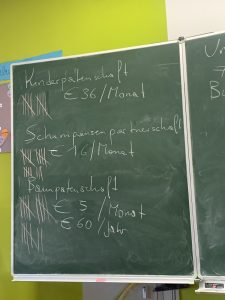 Kinderpatenschaft
€ 36/Monat
Schimpansenpartnerschaft
€ 16/Monat
Baumpatenschaft
€ 5 /Monat
€ 60/Jahr